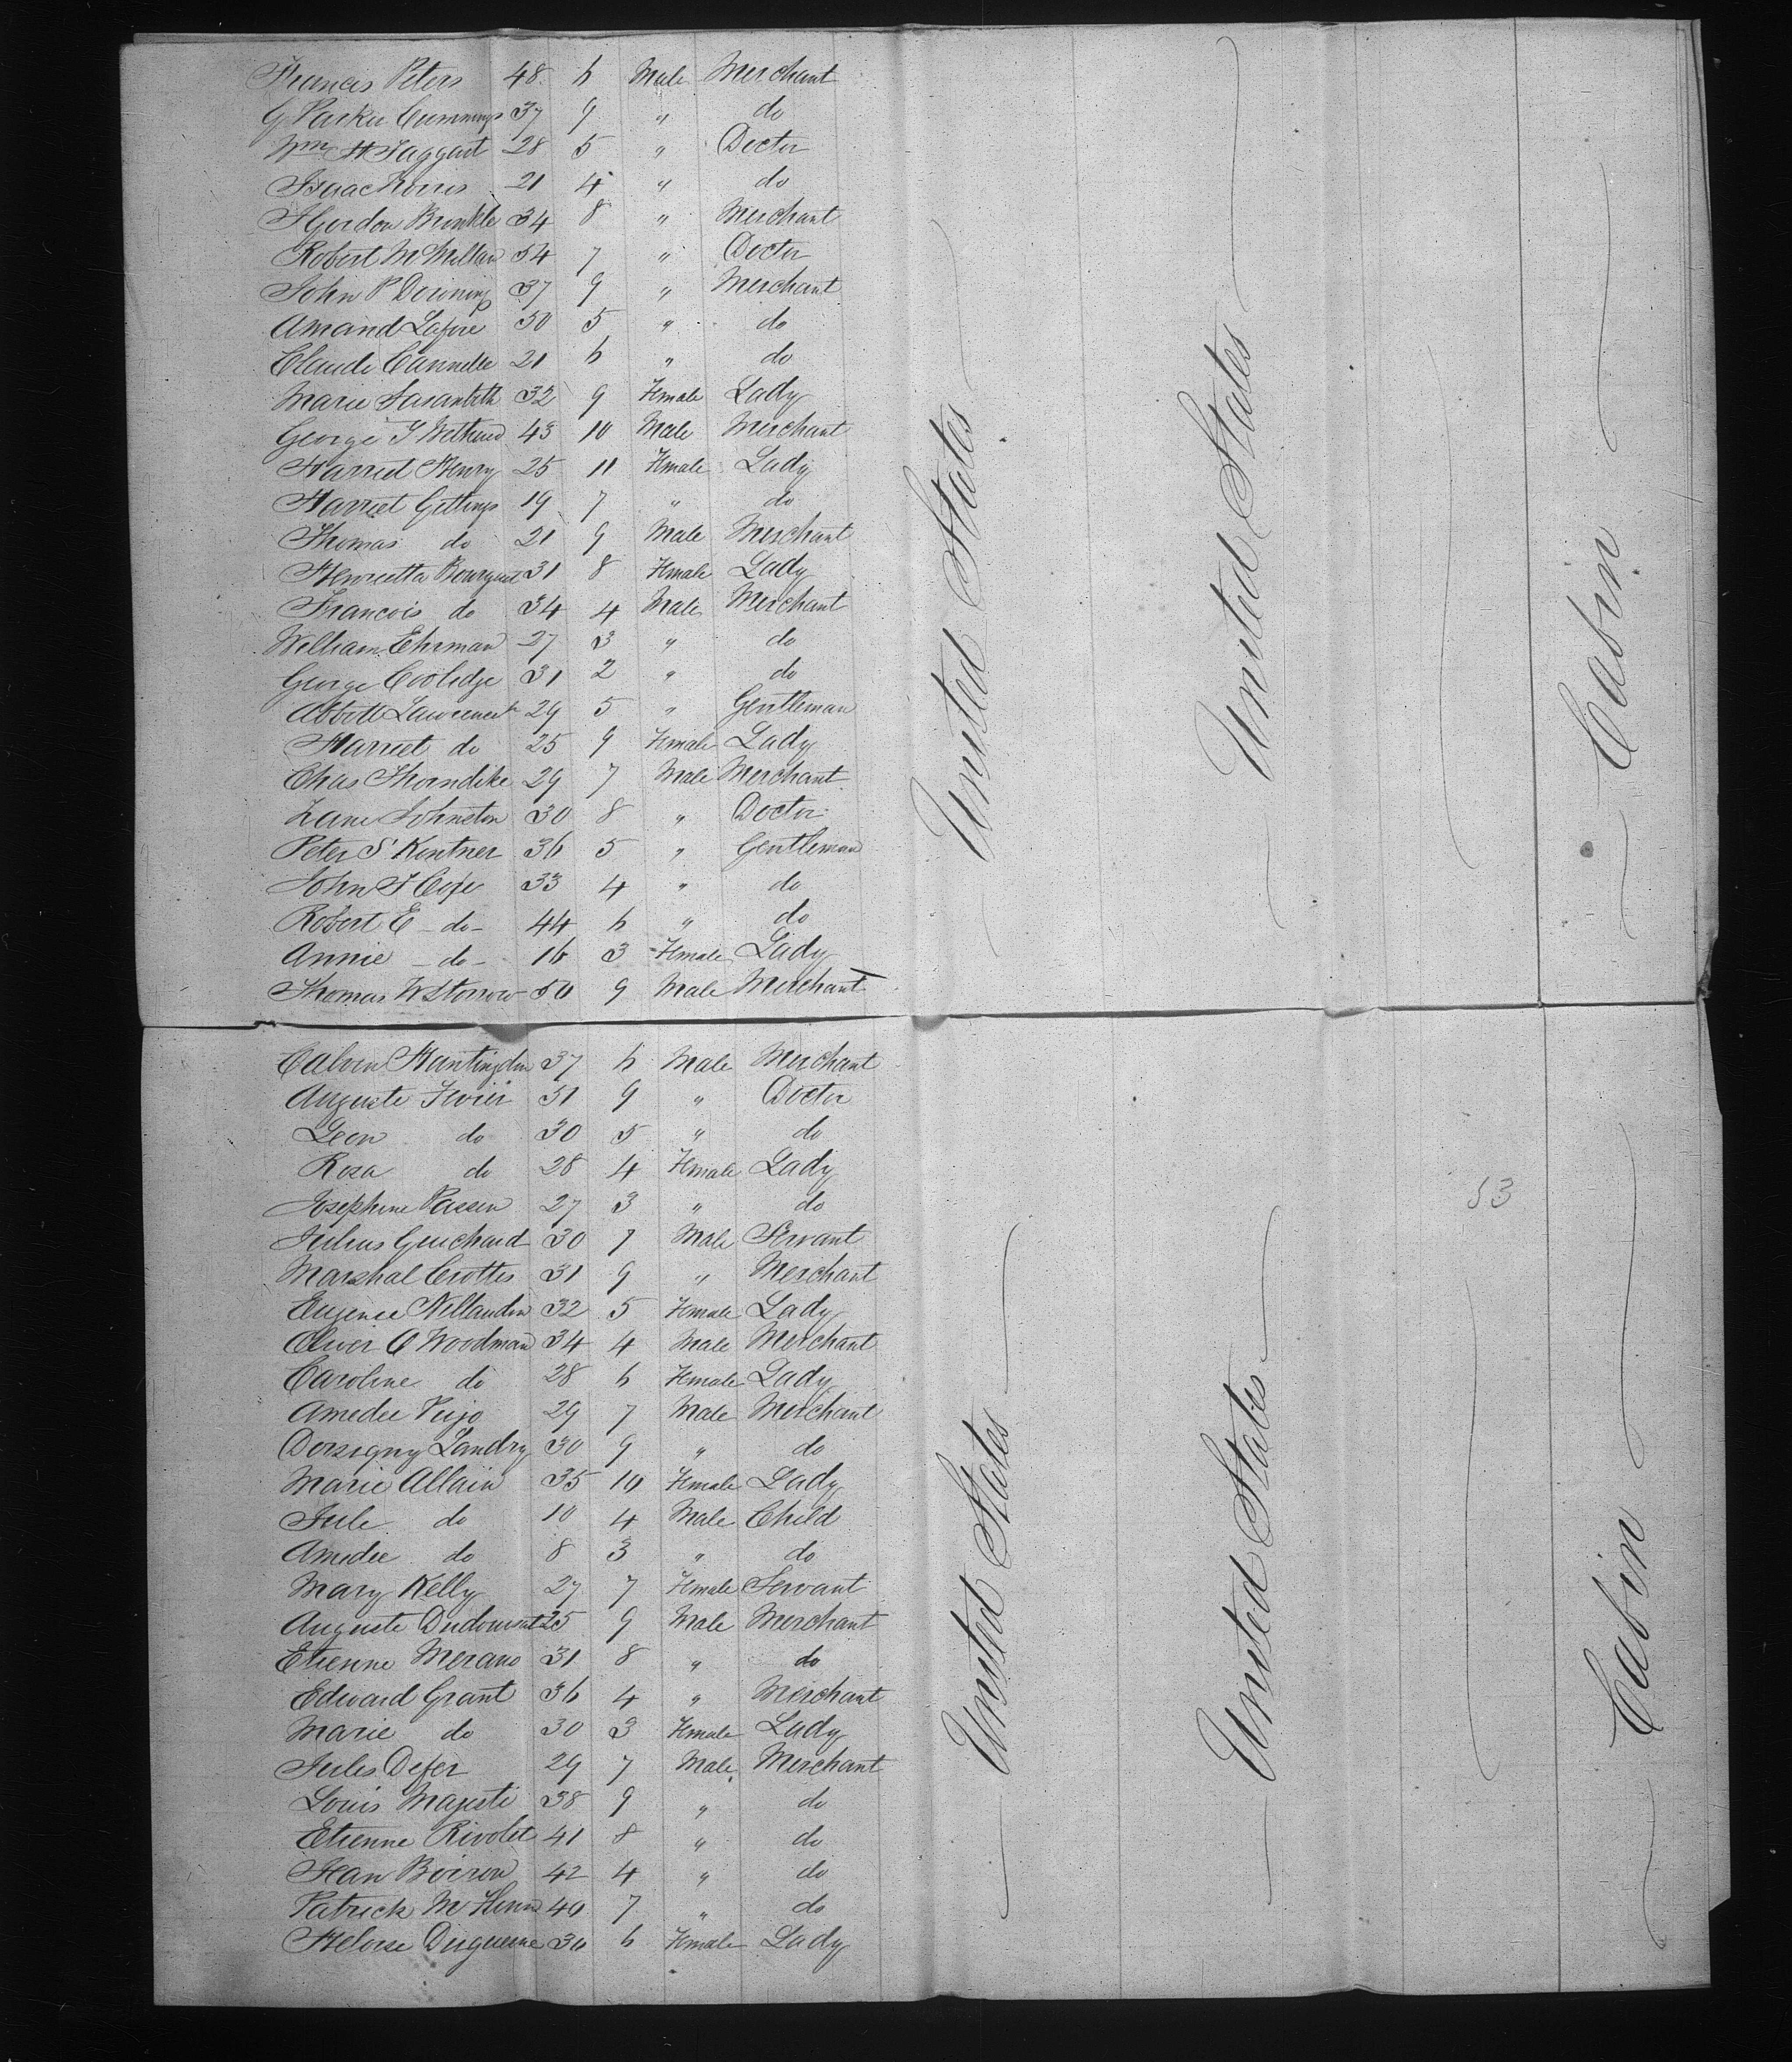 Francis Peters 48 6 Male Merchant
G Parker Cummings 37 9 " do
Wm H Taggart 28 5 " Doctor
Isaac Norris 21 4 " do
Gordon Brinkle 34 8 " Merchant
Robert McMellan 54 7 " Doctor
John P Downing 37 9 " Merchant
Amand 50 5 " do
Claude 21 6 " do
Marie 32 9 Female Lady
George 43 10 Male Merchant
Harriet Henry 25 11 Female Lady
Harriet Gettings 19 7 " do
Thomas do 21 9 Male Merchant
Henrietta 31 8 Female Lady
Francois do 34 4 Male Merchant
William Ehrman 27 3 " do
George Coolidge 31 2 " do
Abbott Lawrence 29 5 " Gentleman
Harriet do 25 9 Female Lady
Chas Thorndike 29 7 Male Merchant
Zane Johnston 30 8 " Doctor
Peter S Kintner 36 5 " Gentleman
John F Cope 33 4 " do
Robert E -do- 44 6 " do
Annie -do- 16 3 Female Lady
Thomas W Storrow 50 9 Male Merchant
United States
United States
Cabin
Calvin Huntingdon 37 6 Male Merchant
Auguste 51 9 " Doctor
Leon do 30 5 " do
Rosa do 28 4 Female Lady
Josephine 27 3 " do
Julius Guichard 30 7 Male Servant
Marshal Crottes 31 9 " Merchant
Eugenee 32 5 Female Lady
Oliver C Woodman 34 4 Male Merchant
Caroline do 28 6 Female Lady
Amedee Pujo 29 7 Male Merchant
Dorsigny Landry 30 9 " do
Marie Allain 35 10 Female Lady
Jule do 10 4 Male Child
Amedee do 8 3 " do
Mary Kelly 27 7 Female Servant
Auguste 25 9 Male Merchant
Etienne Merano 31 8 " do
Edward Grant 36 4 " Merchant
Marie do 30 3 Female Lady
Jules Defer 29 7 Male Merchant
Louis Majeste 38 9 " do
Etienne Rivolet 41 8 " do
Jean Boiron 42 4 " do
Patrick 40 7 " do
Heloise Duquesne 36 6 Female Lady
United States
United States
53
Cabin